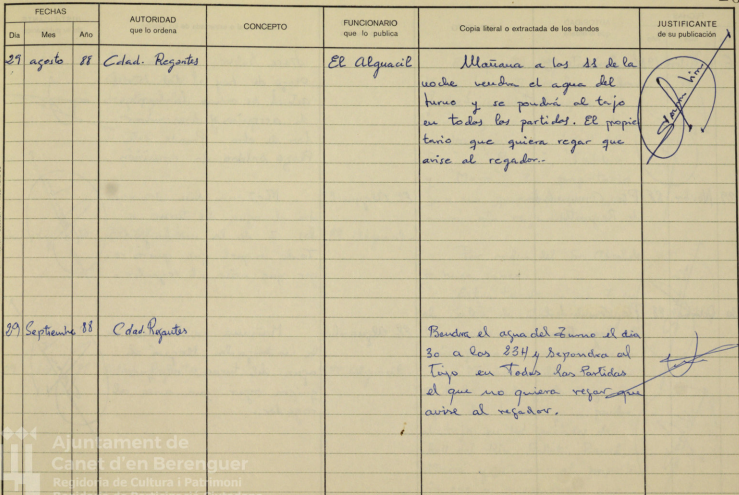 FECHAS
AUTORIDAD
que lo ordena
CONCEPTO
FUNCIONARIO
que lo publica
Copia literal o extractada de los bandos
JUSTIFICANTE
de su publicación
Dia Mes Año
29 agosto 88 Cdad. Regantes El Alguacil Mañana a las 11 de la
noche vendra el agua del
turno y se pondrá al tajo
en todos las partidas. El propie
tario que quiera regar que
avise al regador.-
29 Septiembre 88 Cdad. Regantes Bendra el agua del Turno el dia
30 a las 23H y Sepondra al
Tajo en Todas las Partidas
el que no quiera regar que
avise al regador.
Ajuntament de
Canet d'en Berenguer
Regidoria de Cultura i Patrimoni